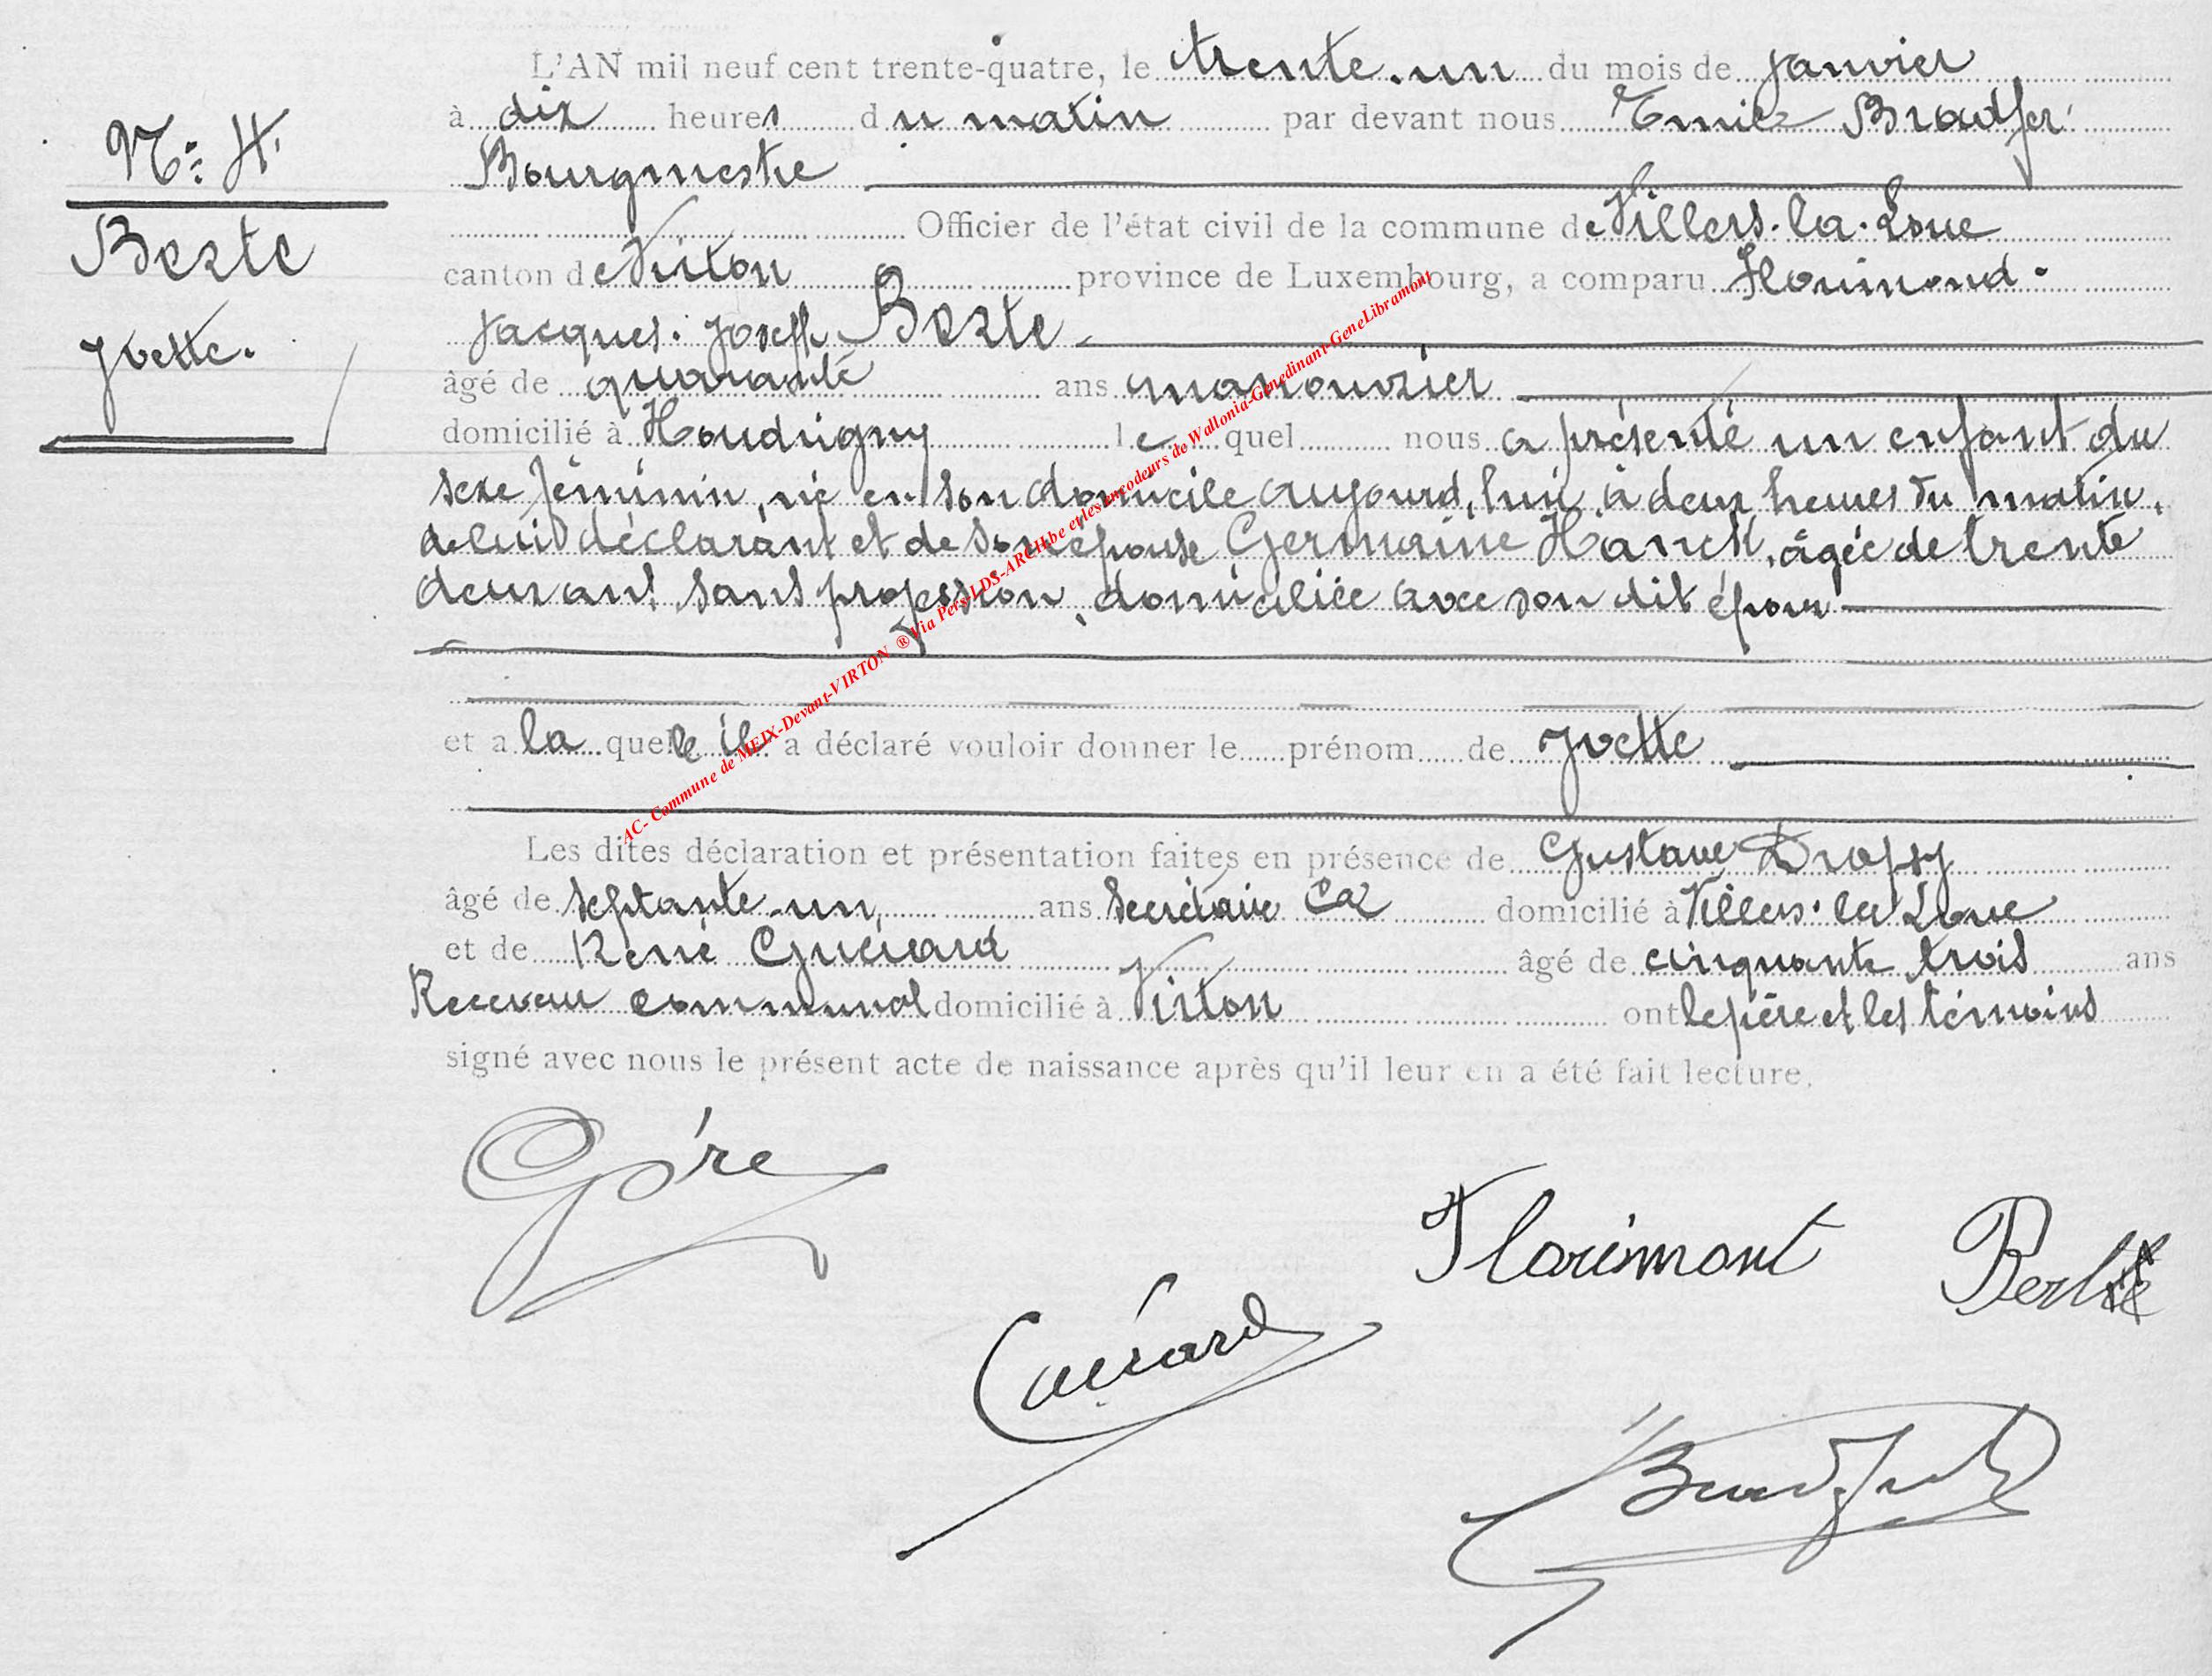 L'AN mil neuf cent trente-quatre, le trente-un du mois de janvier
à dix heures du matin par devant nous Emile Bradfer
Bourgmestre
Officier de l'état civil de la commune de Villers-la-Loue
canton de Virton province de Luxembourg, a comparu Florimond-
Jacques-Joseph
âgé de quarante ans manouvrier
domicilié à Houdrigny lequel nous a présenté un enfant du
sexe féminin, né en son domicile aujourd'hui à deux heures du matin,
de lui déclarant et de son épouse Germaine Hanck, âgée de trente
deux ans, sans profession, domiciliée avec son dit époux
et a laquelle il a déclaré vouloir donner le prénom de Yvette
Les dites déclaration et présentation faites en présence de Gustave Dropsy
âgé de septante-un ans Secrétaire Cal domicilié à Villers-la-Loue
et de René Guérard âgé de cinquante trois ans
Receveur communal domicilié à Virton ont le père et les témoins
signé avec nous le présent acte de naissance après qu'il leur en a été fait lecture.
N° 4
Yvette.
Guérard
Florimont
Bradfer
AC- Commune de MEIX-Devant-VIRTON ® Via Pers LDS-ARCH.be et les encodeurs de Wallonia-Genedinant-GeneLibramont